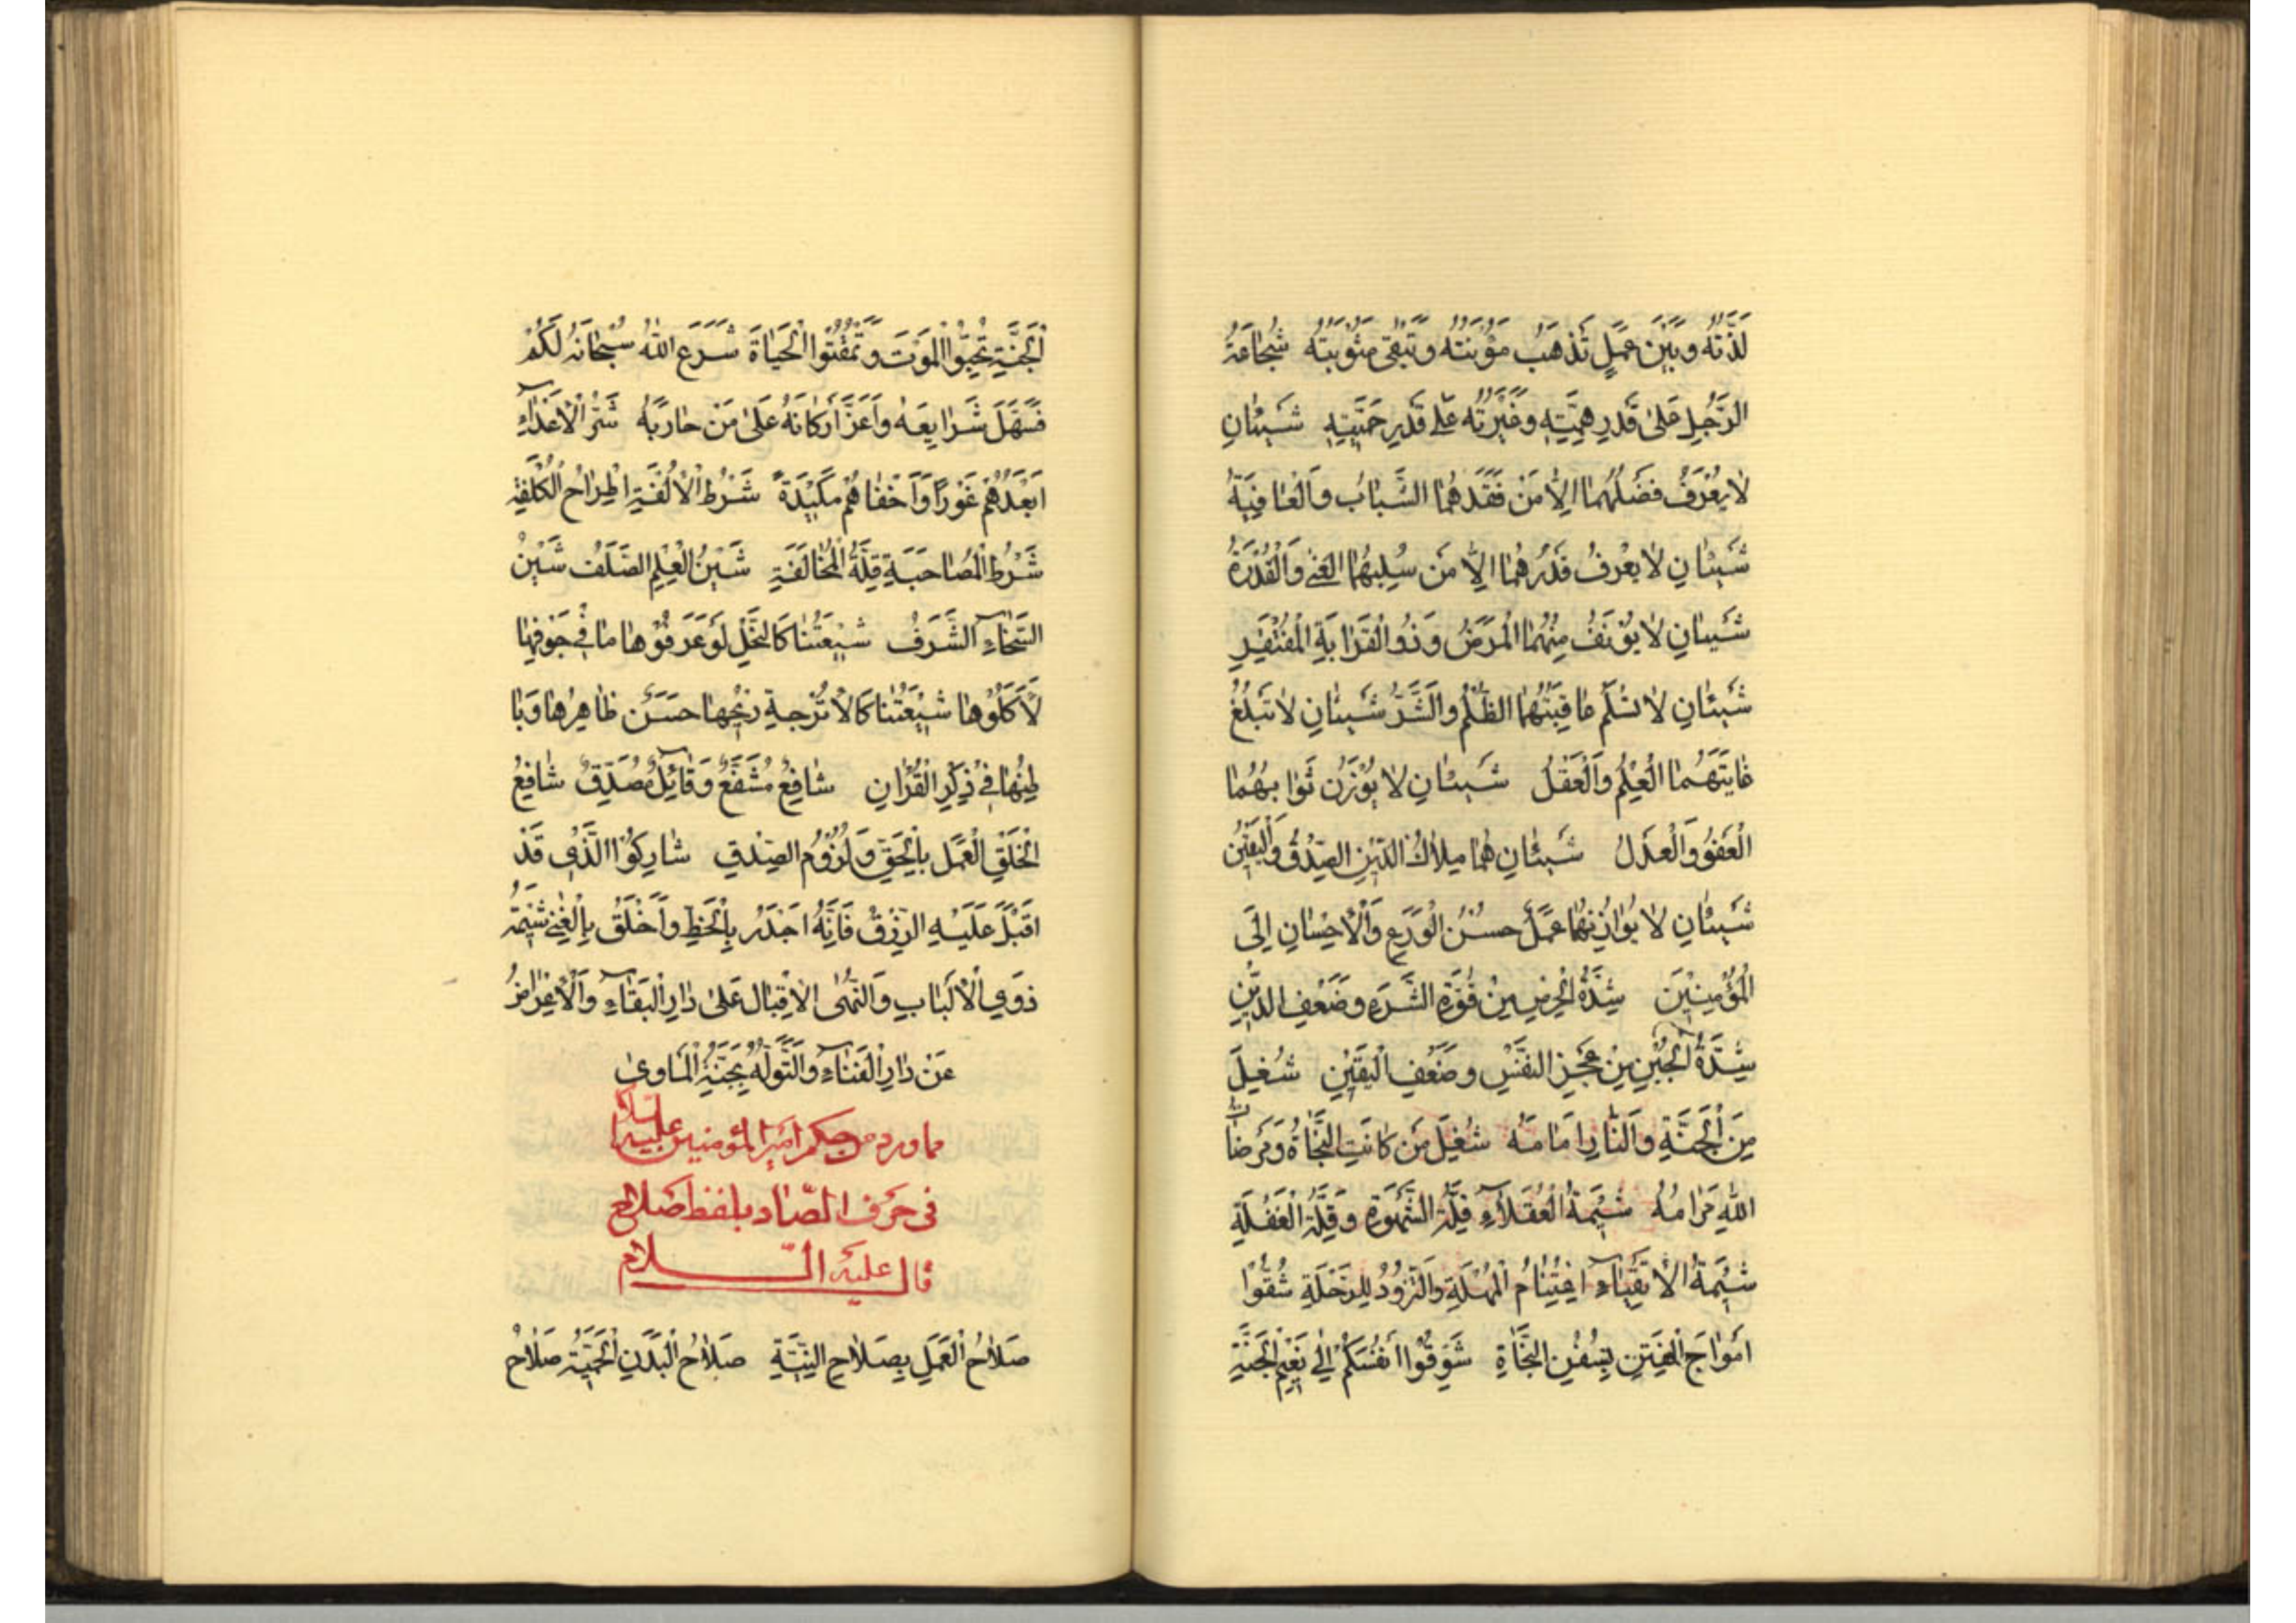 لَذَّتُهُ وَبَيْنَ عَمَلٍ تَذْهَبُ مَؤُنَتُهُ وَتَبْقَى مَثُوبَتُهُ شَجَاعَةُ
الرَّجُلِ عَلَىٰ قَدْرِ هِمَّتِهِ وَغَيْرَتُهُ عَلَى قَدْرِ حَمِيَّتِهِ شَيْئَانِ
لَا يُعْرَفُ فَضْلُهُمَا اِلَّا مَنْ فَقَدَهُمَا الشَّبَابُ وَالْعَافِيَةُ
شَيْئَانِ لَا يَعْرِفُ قَدْرَهُمَا اِلَّا مَنْ سُلِبَهُمَا الْغِنٰى وَالْقُدْرَةُ
شَيْئَانِ لَا يُؤْنَفُ مِنْهُمَا الْمَرَضُ وَذُو الْقَرَابَةِ الْمُفْتَقِرِ
شَيْئَانِ لَا تَسْلَمُ عَاقِبَتُهُمَا الظُّلْمُ وَالشَّرُّ شَيْئَانِ لَا تَبْلُغُ
غَايَتَهُمَا الْعِلْمُ وَالْعَقْلُ شَيْئَانِ لَا يُوْزَنُ ثَوَابُهُمَا
الْعَفْوُ وَالْعَدْلُ شَيْئَانِ هُمَا مِلَاكُ الدِّينِ الصِّدْقُ وَالْيَقِيْنُ
شَيْئَانِ لَا يُوَازِنُهُمَا عَمَلٌ حُسْنُ الْوَرَعِ وَالْاِحْسَانِ اِلَى
الْمُؤْمِنِيْنَ شِدَّةُ الْحِرْصِ مِنْ قُوَّةِ الشَّرَهِ وَضَعْفِ الدِّيْنِ
شِدَّةُ الْجُبْنِ مِنْ عَجْزِ النَّفْسِ وَضَعْفِ الْيَقِيْنِ شُغِلَ
مَنِ الْجَنَّةُ وَالنَّارُ اَمَامَهُ شُغِلَ مَنْ كَانَتِ النَّجَاةُ وَمَرْضَاتُ
اللهِ مَرَامُهُ شِيْمَةُ الْعُقَلَاءِ قِلَّةُ الشَّهْوَةِ وَقِلَّةُ الْغَفْلَةِ
شِيْمَةُ الْاَتْقِيَاءِ اغْتِنَامُ الْمُهْلَةِ وَالتَّزَوُّدُ لِلرِّحْلَةِ شُقُّوْا
اَمْوَاجَ الْفِتَنِ بِسُفُنِ النَّجَاةِ شَوِّقُوْا اَنْفُسَكُمْ اِلٰى نَعِيْمِ الْجَنَّةِ
الْجَنَّةِ تُحِبُّوا الْمَوْتَ وَتَمْقُتُوا الْحَيَاةَ شَرَعَ اللهُ سُبْحَانَهُ لَكُمُ
فَسَهَّلَ شَرَايِعَهُ وَاَعَزَّ اَرْكَانَهُ عَلَىٰ مَنْ حَارَبَهُ شَرُّ الْاَعْدَاءِ
اَبْعَدُهُمْ غَوْرًا وَاَخْفَاهُمْ مَكِيْدَةً شَرْطُ الْاُلْفَةِ اطِّرَاحُ الْكُلْفَةِ
شَرْطُ الْمُصَاحَبَةِ قِلَّةُ الْمُخَالَفَةِ شَيْنُ الْعِلْمِ الصَّلَفُ شَيْنُ
السَّخَاءِ الشَّرَفُ شِيْعَتُنَا كَالنَّحْلِ لَوْ عَرَفُوْهَا مَا فِى جَوْفِهَا
لَاَكَلُوْهَا شِيْعَتُنَا كَالْاُتْرُجَةِ رِيْحُهَا حَسَنٌ ظَاهِرُهَا وَبَا
طِنُهَا فِى ذِكْرِ الْقُرْاٰنِ شَافِعٌ مُشَفَّعٌ وَقَائِلٌ مُصَدِّقٌ شَافِعُ
الْخَلْقِ الْعَمَلُ بِالْحَقِّ وَلُزُوْمُ الصِّدْقِ شَارِكُوا الَّذِي قَدْ
اَقْبَلَ عَلَيْهِ الرِّزْقُ فَاِنَّهُ اَجْدَرُ بِالْحَظِّ وَاَخْلَقُ بِالْغِنٰى شِيْمَةُ
ذَوِي الْاَلْبَابِ وَالنُّهٰى الْاِقْبَالُ عَلَىٰ دَارِ الْبَقَاءِ وَالْاِعْرَاضُ
عَنْ دَارِ الْفَنَاءِ وَالتَّوَلُّهُ بِجَنَّةِ الْمَاْوىٰ
مما ورد من حكم امير المؤمنين عليه السلام
فى حرف الصّاد بلفظ صَلاح
قال عليه السّلام
صَلَاحُ الْعَمَلِ بِصَلَاحِ النِّيَّةِ صَلَاحُ الْبَدَنِ الْحِمْيَةُ صَلَاحُ